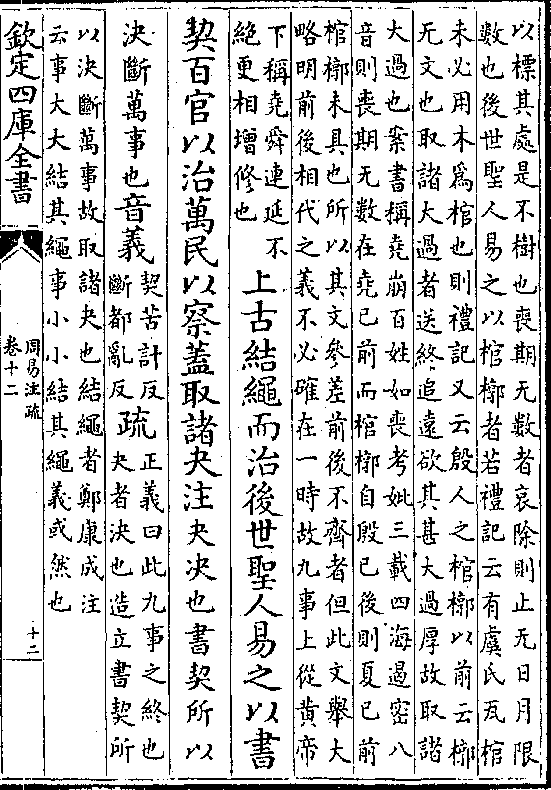 以標其處是不樹也喪期无數者哀除則止无日月限
數也後世聖人易之以棺槨者若禮記云有虞氏瓦棺
未必用木為棺也則禮記又云殷人之棺槨以前云槨
无文也取諸大過者送終追遠欲其甚大過厚故取諸
大過也案書稱堯崩百姓如喪考妣三載四海遏密八
音則喪期无數在堯已前而棺槨自殷已後則夏已前
棺槨未具也所以其文參差前後不齊者但此文舉大
略明前後相代之義不必確在一時故九事上從黃帝
下稱堯舜連延不
絶更相増修也
上古結繩而治後世聖人易之以書
契百官以治萬民以察蓋取諸夬注夬決也書契所以
決斷萬事也音義
契苦計反
斷都亂反
疏
正義曰此九事之終也
夬者決也造立書契所
以決斷萬事故取諸夬也結繩者鄭康成注
云事大大結其繩事小小結其繩義或然也
欽定四庫全書
周易注疏
卷十二
十二